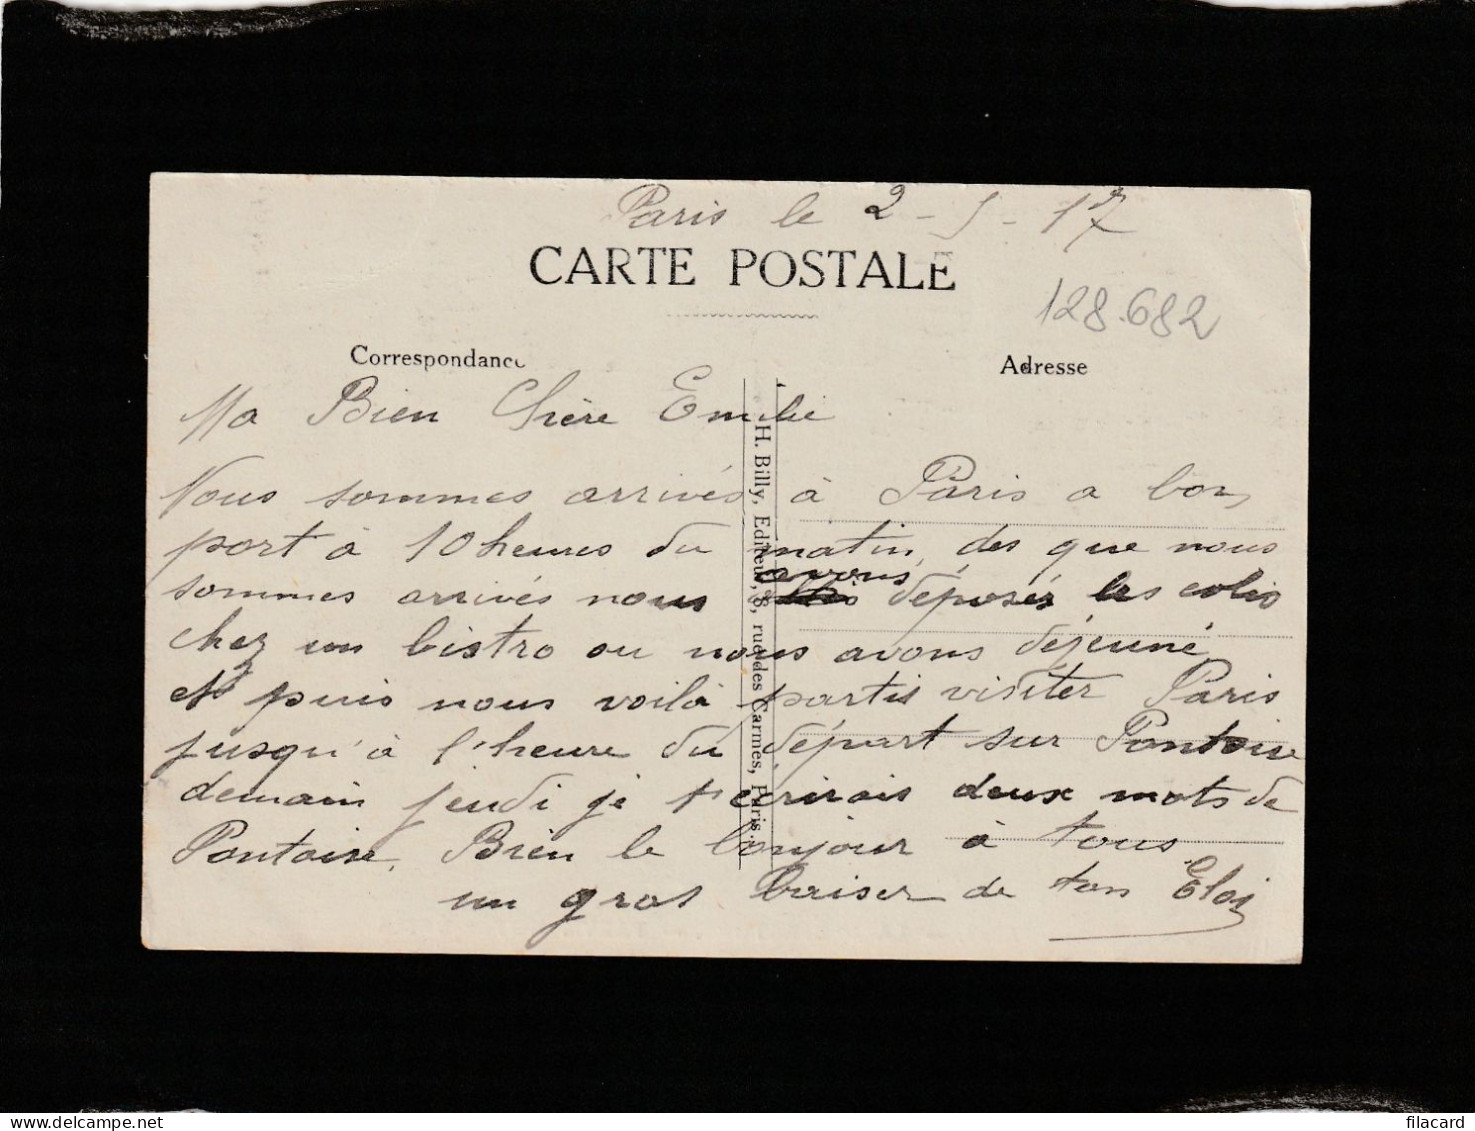 Paris le 2-5-17
CARTE POSTALE
128.682
Correspondance
Adresse
Ma Bien Chère Emilie
Nous sommes arrivés à Paris a bon
port à 10 heures du matin, des que nous
sommes arrivés nous avons déposés les colis
chez un bistro ou nous avons déjeuné
et puis nous voilà partis visiter Paris
jusqu'à l'heure du départ sur Pontoise
demain jeudi je t'écrirais deux mots de
Pontoise. Bien le bonjour à tous
un gros baiser de ton Eloi
H. Billy, Editeur, 8, rue des Carmes, Paris.
filacard